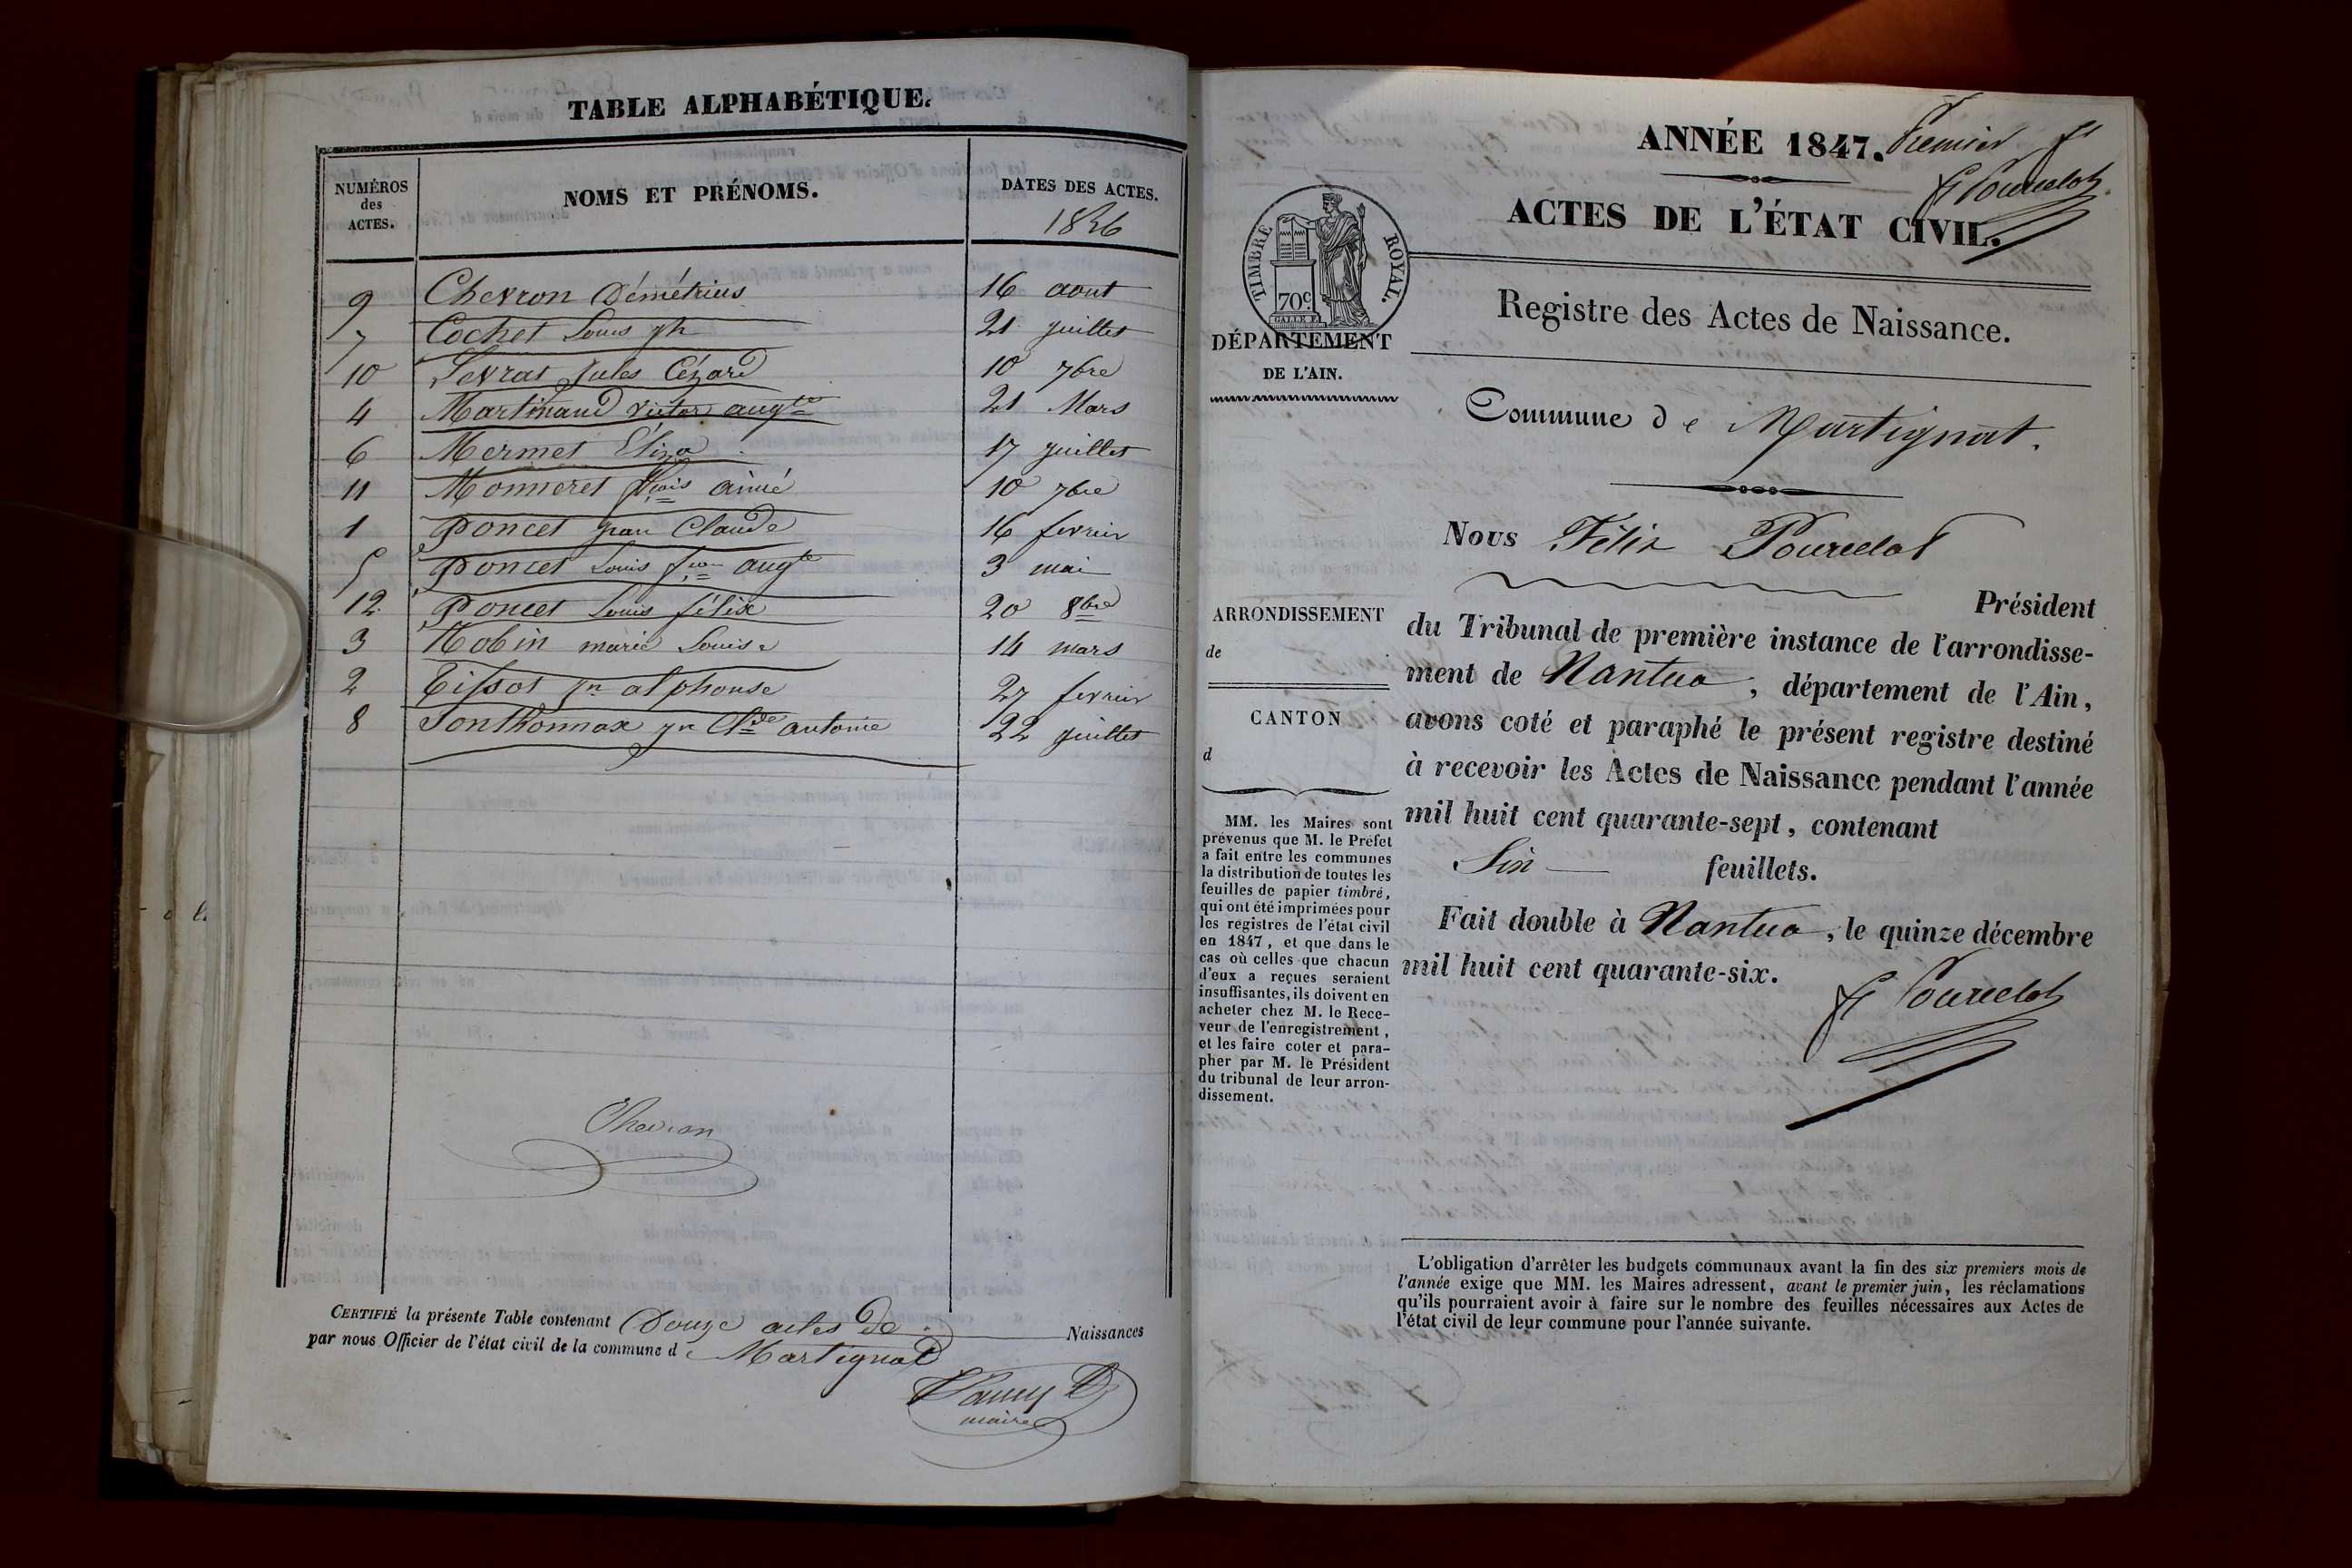 TABLE ALPHABÉTIQUE.
NUMÉROS
des
ACTES.
NOMS ET PRÉNOMS.
DATES DES ACTES.
1846
9 Chevron Démétrius 16 aout
7 Cochet Louis jh 21 juillet
10 Levrat Jules Cézard 10 7bre
4 Martinand victor augte 21 Mars
6 Mermet Eliza 17 juillet
11 Monneret fçois aimé 10 7bre
1 Poncet jean Claude 16 fevrier
5 Poncet Louis augte 3 mai
12 Poncet Louis félix 20 8bre
3 Robin marie Louise 14 mars
2 Tissot jn alphonse 27 fevrier
8 Sonthonnax jn Clde antoine 22 juillet
Chevron
CERTIFIÉ la présente Table contenant Douze actes de Naissances
par nous Officier de l'état civil de la commune de Martignat
maire
ANNÉE 1847. Premier
F Pourcelot
ACTES DE L'ÉTAT CIVIL.
TIMBRE ROYAL.
70c
DÉPARTEMENT
DE L'AIN.
Registre des Actes de Naissance.
Commune de Martignat.
Nous Félix Pourcelot
Président
du Tribunal de première instance de l'arrondisse-
ment de Nantua, département de l'Ain,
avons coté et paraphé le présent registre destiné
à recevoir les Actes de Naissance pendant l'année
mil huit cent quarante-sept, contenant
Six feuillets.
Fait double à Nantua, le quinze décembre
mil huit cent quarante-six.
F Pourcelot
ARRONDISSEMENT
de
CANTON
d
MM. les Maires sont
prévenus que M. le Préfet
a fait entre les communes
la distribution de toutes les
feuilles de papier timbré,
qui ont été imprimées pour
les registres de l'état civil
en 1847, et que dans le
cas où celles que chacun
d'eux a reçues seraient
insuffisantes, ils doivent en
acheter chez M. le Rece-
veur de l'enregistrement,
et les faire coter et para-
pher par M. le Président
du tribunal de leur arron-
dissement.
L'obligation d'arrêter les budgets communaux avant la fin des six premiers mois de
l'année exige que MM. les Maires adressent, avant le premier juin, les réclamations
qu'ils pourraient avoir à faire sur le nombre des feuilles nécessaires aux Actes de
l'état civil de leur commune pour l'année suivante.